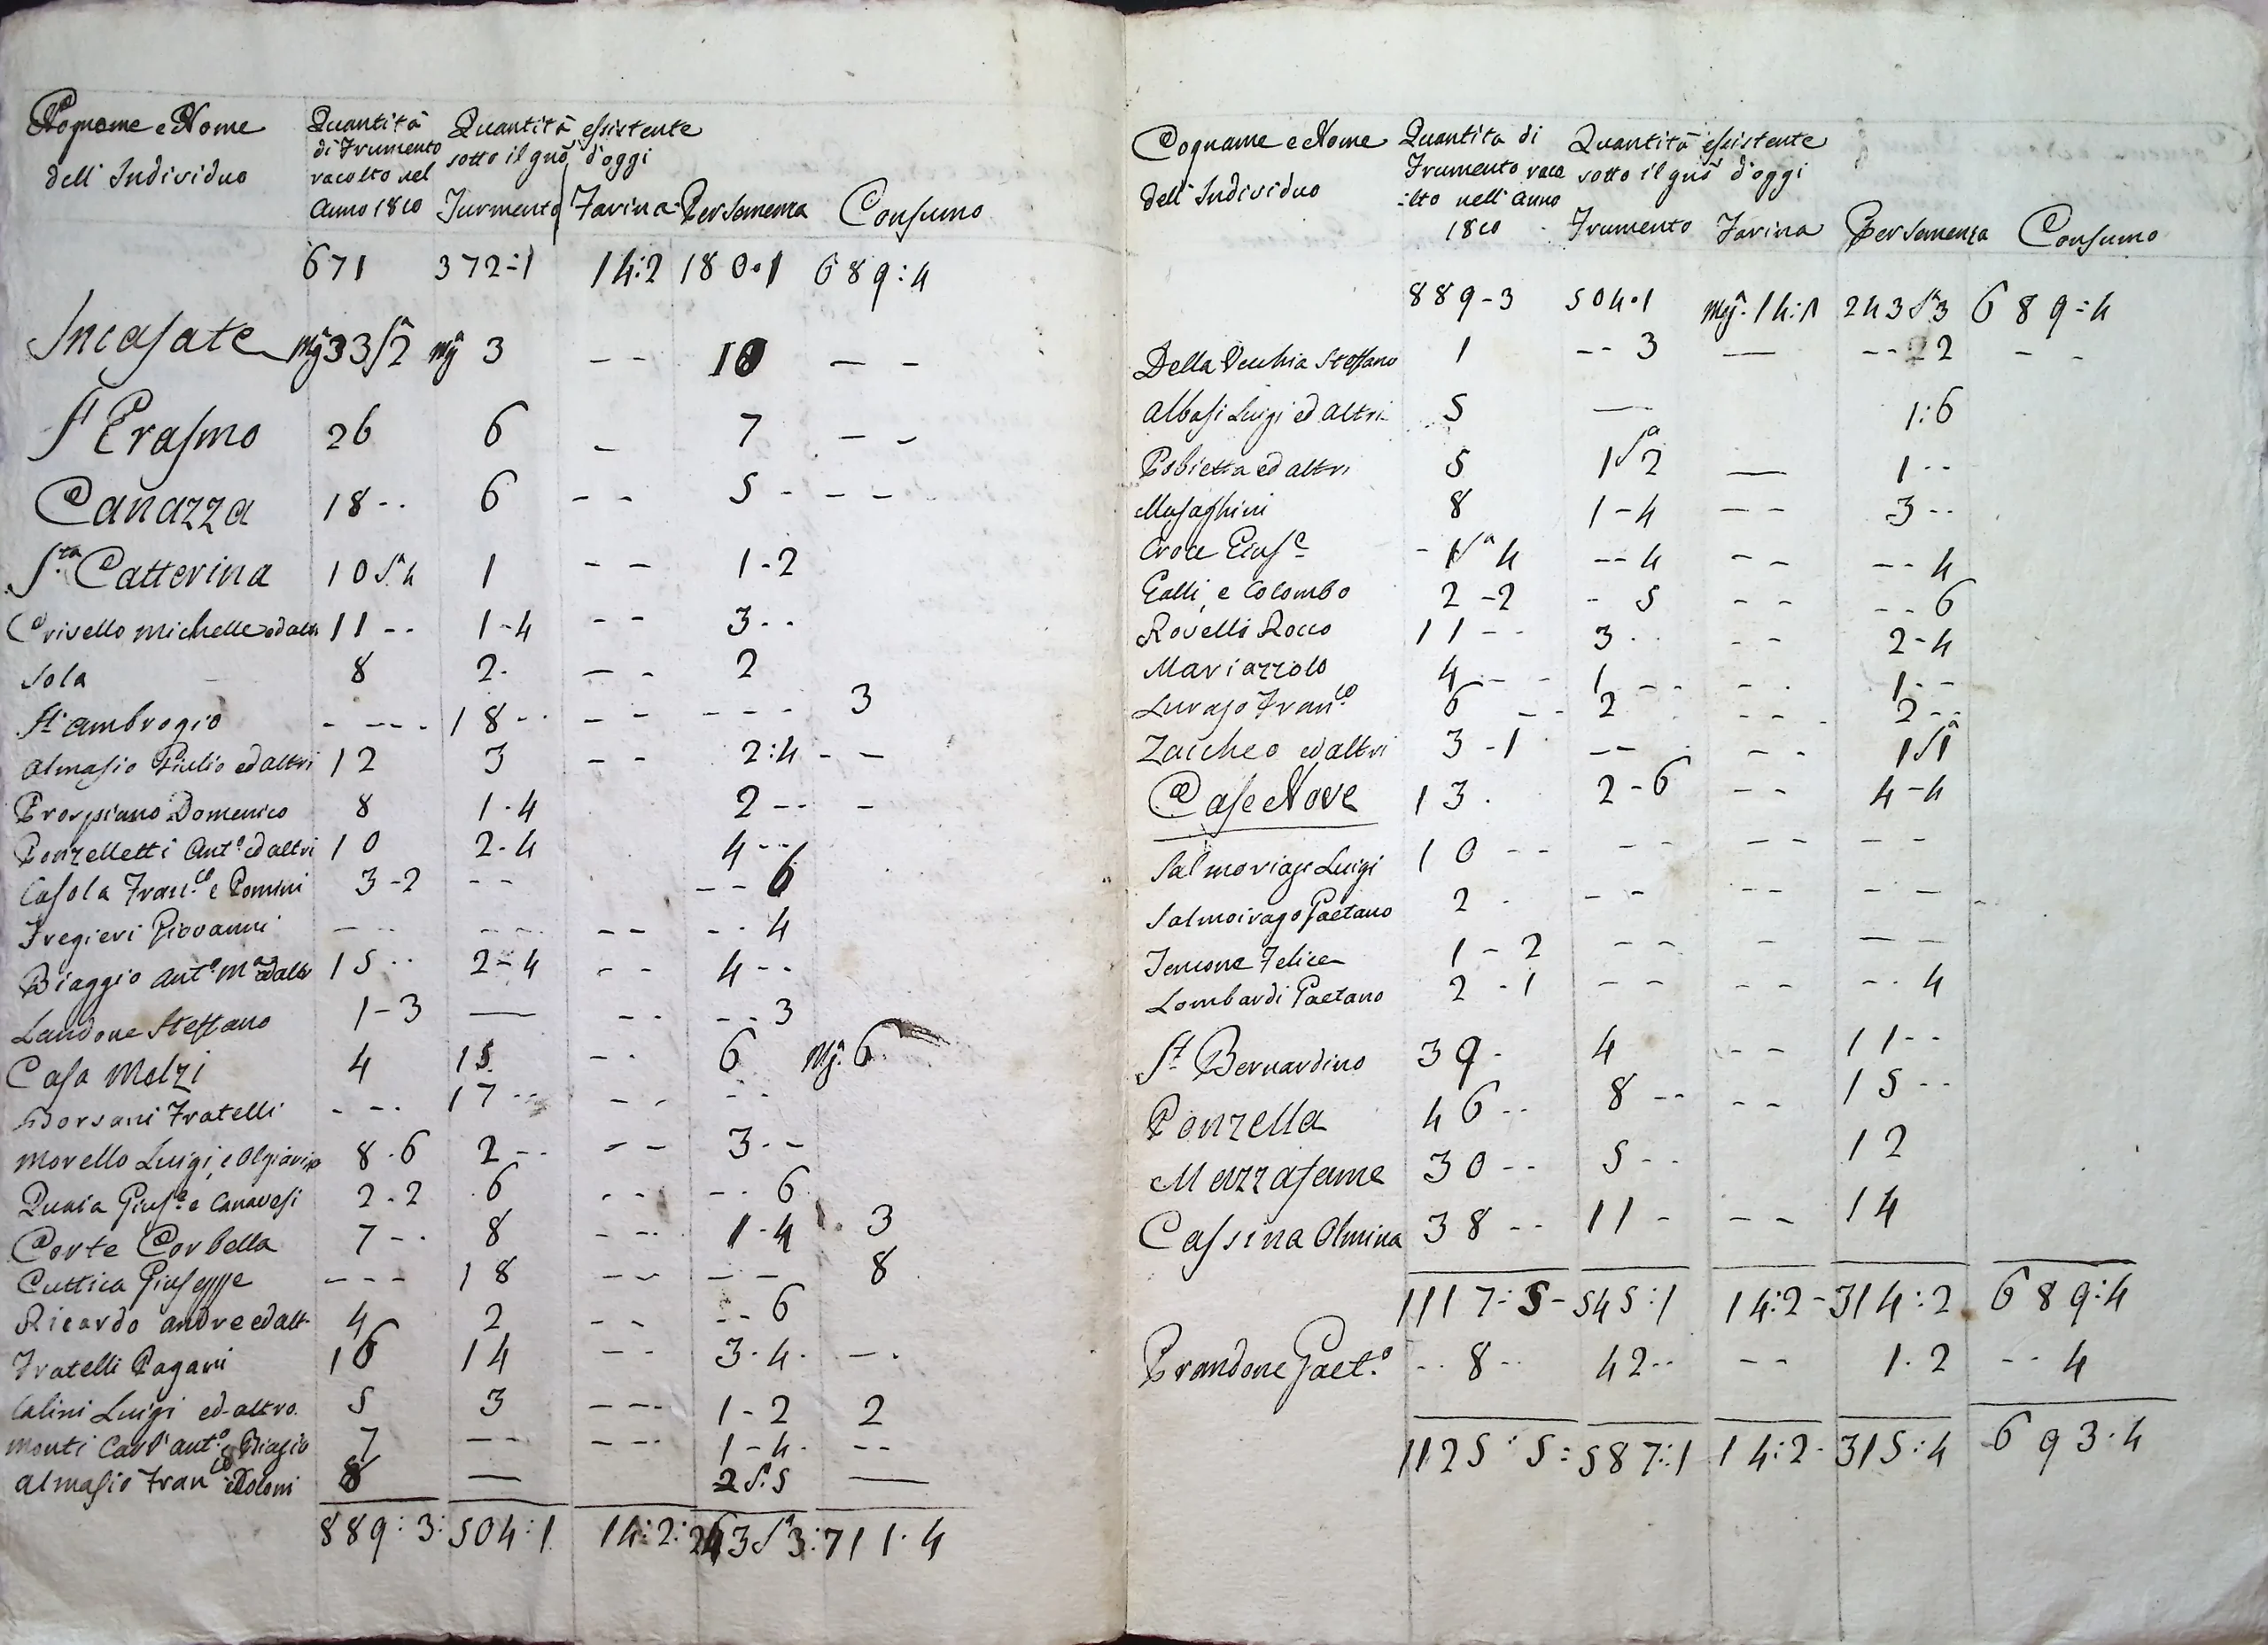 Cognome e Nome dell' Individuo
Quantità di Frumento racolto nel Anno 1810
Quantità essistente sotto il gnō d'oggi
Furmento Farina Per Semenza Consumo
671 372:1 14:2 180.1 689:4
Incasate Mg 33 S.a 2 Mg 3 -- 10 --
S.t Erasmo 26 6 - 7 --
Canazza 18-- 6 -- 5 - --
S.ta Catterina 10 S.a 4 1 -- 1-2
Crivello Michelle ed altri 11-- 1-4 -- 3--
Sola 8 2. -- 2
S.t Ambrogio ---- 18-- -- --- 3
Almasio Giulio ed altri 12 3 -- 2:4 --
Prospiano Domenico 8 1.4 2-- -
Ponzelletti Ant.o ed altri 10 2.4 4--
Casola Fran.co e Pomini 3-2 -- --6
Fregieri Giovanni -- -- -- --4
Biaggio Ant.o M.a ed altri 15-- 2-4 -- 4--
Landone Steffano 1-3 — -- --3
Casa Melzi 4 15 -- 6 Mg. 6
Borsani Fratelli --- 17-- -- --
Morello Luigi, e Olgiario 8.6 2-- -- 3--
Quaia Gius.e e Canavesi 2-2 .6 -- --6
Corte Corbella 7-- 8 -- 1-4 3
Cuttica Giuseppe --- 18 -- -- 8
Ricardo Andre ed alt. 4 2 -- --6
Fratelli Pagani 16 14 -- 3.4. --
Calini Luigi ed altro. 5 3 --- 1-2 2
Monti Carl' Ant.o, Biagio 7 -- --- 1-4. --
Almasio Fran.co e Coloni 8 — 2 S. 5 —
889:3: 504:1 14:2: 243 S.a 3: 711.4
Cognome e Nome dell' Individuo
Quantita di Frumento raco :lto nell' Anno 1810
Quantità essistente sotto il gnō d'oggi
Frumento Farina Per Semenza Consumo
889-3 504.1 Mg. 14:1 243 S.a 3 689:4
Della Vecchia Steffano 1 --3 — --22 --
Albasi Luigi ed Altri 5 — 1:6
Pobietta ed altri 5 1 S.a 2 — 1--
Musaghini 8 1-4 -- 3--
Croce Gius.e - 1 S.a 4 --4 -- --4
Galli, e Colombo 2-2 - 5 -- --6
Rovelli Rocco 11-- 3-- -- 2-4
Mariazzolo 4-- 1-- -- 1--
Luraso Fran.co 6-- 2 -- 2--
Zaccheo ed altri 3-1 -- -- 1 S.a 1
Case Nove 13. 2-6 -- 4-4
Salmoriagi Luigi 10-- -- -- --
Salmoirago Gaetano 2 - -- -- --
Jencone Felice 1-2 -- - --
Lombardi Gaetano 2-1 -- -- --4
S.t Bernardino 39- 4 -- 11--
Ponzella 46-- 8-- -- 15--
Mezzasame 30-- 5-- 12
Cassina Olmina 38-- 11- -- 14
1117:5- 545:1 14:2- 314:2 689:4
Prandone Gaet.o --8-- 42-- -- 1.2 --4
1125:5: 587:1 14:2- 315:4 693.4